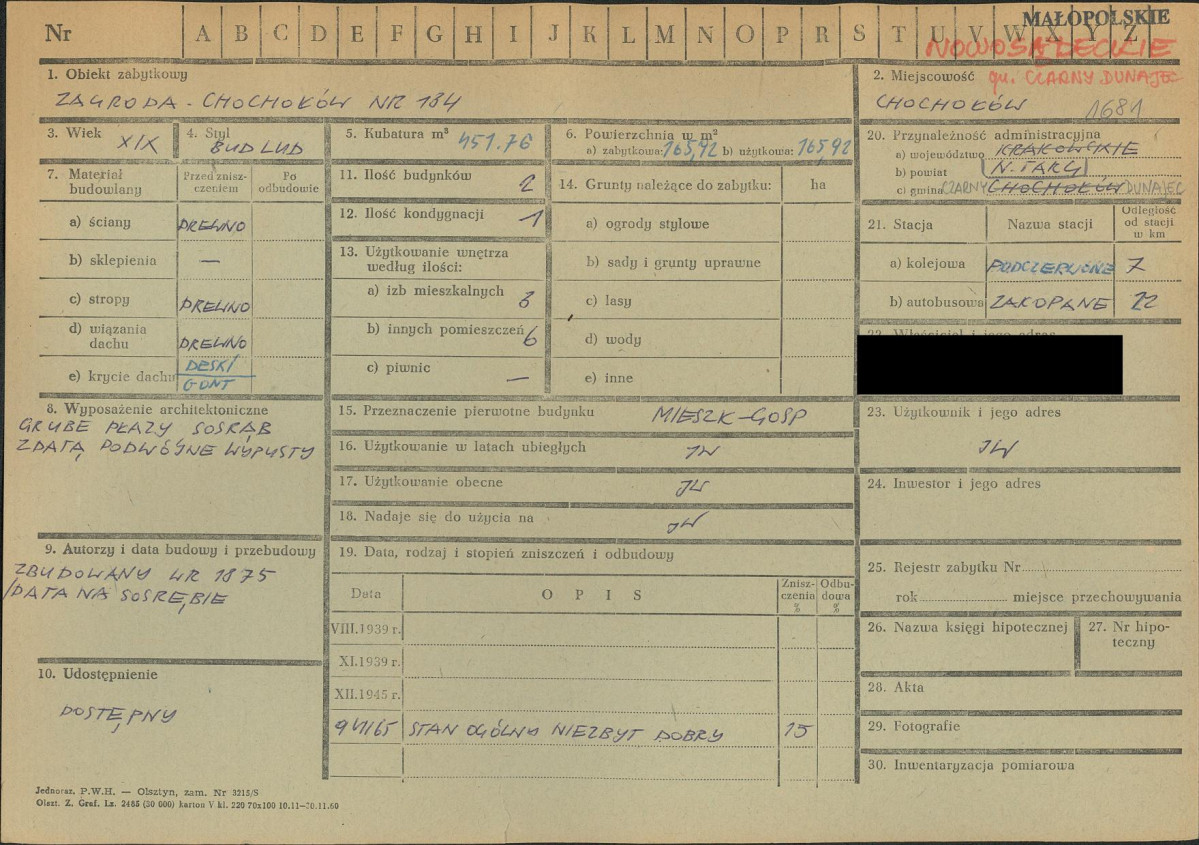 Nr A B C D E F G H I J K L M N O P R S T U V W X Y Z
MAŁOPOLSKIE
NOWOSĄDECKIE
1. Obiekt zabytkowy
ZAGRODA - CHOCHOŁÓW NR 184
2. Miejscowość gm. CZARNY DUNAJEC
CHOCHOŁÓW 1681
3. Wiek XIX
4. Styl
BUD LUD
5. Kubatura m³ 451.76
6. Powierzchnia w m²
a) zabytkowa: 165,92 b) użytkowa: 165,92
7. Materiał budowlany
Przed zniszczeniem
Po odbudowie
a) ściany DREWNO
b) sklepienia —
c) stropy DREWNO
d) wiązania dachu DREWNO
e) krycie dachu DESKI
GONT
8. Wyposażenie architektoniczne
GRUBE PŁAZY SOSRĄB
Z DATĄ, PODWÓJNE WYPUSTY
9. Autorzy i data budowy i przebudowy
ZBUDOWANY W R 1875
/DATA NA SOSRĘBIE
10. Udostępnienie
DOSTĘPNY
11. Ilość budynków 2
12. Ilość kondygnacji 1
13. Użytkowanie wnętrza
według ilości:
a) izb mieszkalnych 3
b) innych pomieszczeń 6
c) piwnic —
14. Grunty należące do zabytku: ha
a) ogrody stylowe
b) sady i grunty uprawne
c) lasy
d) wody
e) inne
15. Przeznaczenie pierwotne budynku MIESZK-GOSP
16. Użytkowanie w latach ubiegłych JW
17. Użytkowanie obecne JW
18. Nadaje się do użycia na JW
19. Data, rodzaj i stopień zniszczeń i odbudowy
Data OPIS Zniszczenia % Odbudowa %
VIII.1939 r.
XI.1939 r.
XII.1945 r.
9 VI/65 STAN OGÓLNY NIEZBYT DOBRY 15
20. Przynależność administracyjna
a) województwo KRAKOWSKIE
b) powiat N. TARG
c) gmina CZARNY CHOCHOŁÓW DUNAJEC
21. Stacja Nazwa stacji Odległość od stacji w km
a) kolejowa PODCZERWONE 7
b) autobusowa ZAKOPANE 22
22. Właściciel i jego adres
23. Użytkownik i jego adres
JW
24. Inwestor i jego adres
25. Rejestr zabytku Nr
rok miejsce przechowywania
26. Nazwa księgi hipotecznej
27. Nr hipoteczny
28. Akta
29. Fotografie
30. Inwentaryzacja pomiarowa
Jednoraz. P.W.H. — Olsztyn, zam. Nr 3215/S
Olszt. Z. Graf. Lz. 2485 (30 000) karton V kl. 220 70x100 10.11—30.11.60